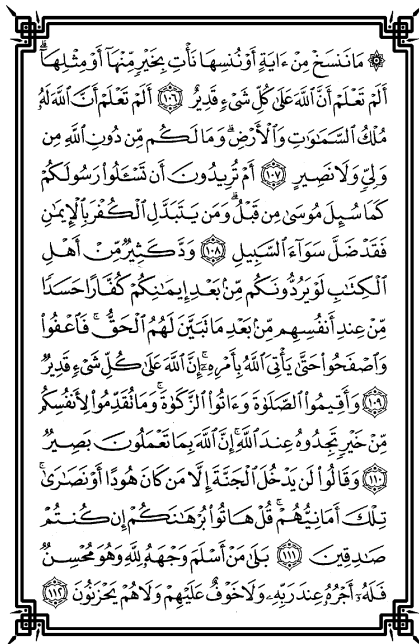 ۞ مَا نَنسَخْ مِنْ ءَايَةٍ أَوْ نُنسِهَا نَأْتِ بِخَيْرٍ مِّنْهَآ أَوْ مِثْلِهَآ ۗ
أَلَمْ تَعْلَمْ أَنَّ ٱللَّهَ عَلَىٰ كُلِّ شَىْءٍ قَدِيرٌ ١٠٦ أَلَمْ تَعْلَمْ أَنَّ ٱللَّهَ لَهُۥ
مُلْكُ ٱلسَّمَـٰوَٰتِ وَٱلْأَرْضِ ۗ وَمَا لَكُم مِّن دُونِ ٱللَّهِ مِن
وَلِىٍّ وَلَا نَصِيرٍ ١٠٧ أَمْ تُرِيدُونَ أَن تَسْـَٔلُوا۟ رَسُولَكُمْ
كَمَا سُئِلَ مُوسَىٰ مِن قَبْلُ ۗ وَمَن يَتَبَدَّلِ ٱلْكُفْرَ بِٱلْإِيمَـٰنِ
فَقَدْ ضَلَّ سَوَآءَ ٱلسَّبِيلِ ١٠٨ وَدَّ كَثِيرٌ مِّنْ أَهْلِ
ٱلْكِتَـٰبِ لَوْ يَرُدُّونَكُم مِّنۢ بَعْدِ إِيمَـٰنِكُمْ كُفَّارًا حَسَدًا
مِّنْ عِندِ أَنفُسِهِم مِّنۢ بَعْدِ مَا تَبَيَّنَ لَهُمُ ٱلْحَقُّ ۖ فَٱعْفُوا۟
وَٱصْفَحُوا۟ حَتَّىٰ يَأْتِىَ ٱللَّهُ بِأَمْرِهِۦٓ ۗ إِنَّ ٱللَّهَ عَلَىٰ كُلِّ شَىْءٍ قَدِيرٌ
١٠٩ وَأَقِيمُوا۟ ٱلصَّلَوٰةَ وَءَاتُوا۟ ٱلزَّكَوٰةَ ۚ وَمَا تُقَدِّمُوا۟ لِأَنفُسِكُم
مِّنْ خَيْرٍ تَجِدُوهُ عِندَ ٱللَّهِ ۗ إِنَّ ٱللَّهَ بِمَا تَعْمَلُونَ بَصِيرٌ
١١٠ وَقَالُوا۟ لَن يَدْخُلَ ٱلْجَنَّةَ إِلَّا مَن كَانَ هُودًا أَوْ نَصَـٰرَىٰ ۗ
تِلْكَ أَمَانِيُّهُمْ ۗ قُلْ هَاتُوا۟ بُرْهَـٰنَكُمْ إِن كُنتُمْ
صَـٰدِقِينَ ١١١ بَلَىٰ مَنْ أَسْلَمَ وَجْهَهُۥ لِلَّهِ وَهُوَ مُحْسِنٌ
فَلَهُۥٓ أَجْرُهُۥ عِندَ رَبِّهِۦ وَلَا خَوْفٌ عَلَيْهِمْ وَلَا هُمْ يَحْزَنُونَ ١١٢